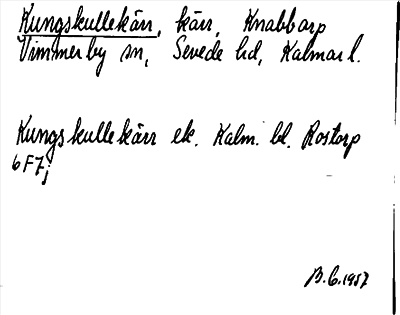 Kungskullekärr, kärr, Knabbarp
Vimmerby sn, Sevede hd, Kalmar l.
Kungskullekärr ek. Kalm. bl. Rostorp
6 F 7 j
B.G. 1957